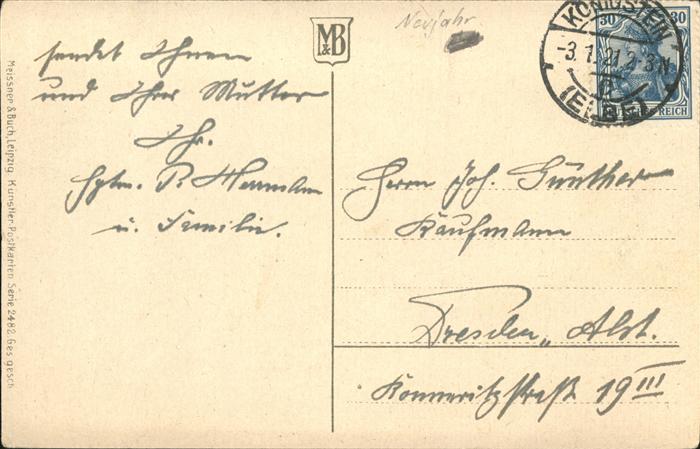 sendet Ihnen
und Ihrer Mutter
Ihr.
Hptm. P. Herrmann
u. Familie.
M&B
Neujahr
KÖNIGSTEIN
-3.1.21 2-3N.
(ELBE)
30 30
DEUTSCHES REICH
Herrn Joh. Günther
Kaufmann
Dresden, Alst.
Könneritzstraße 19 III
Meissner & Buch, Leipzig. Künstler-Postkarten Serie 2482. Ges. gesch.